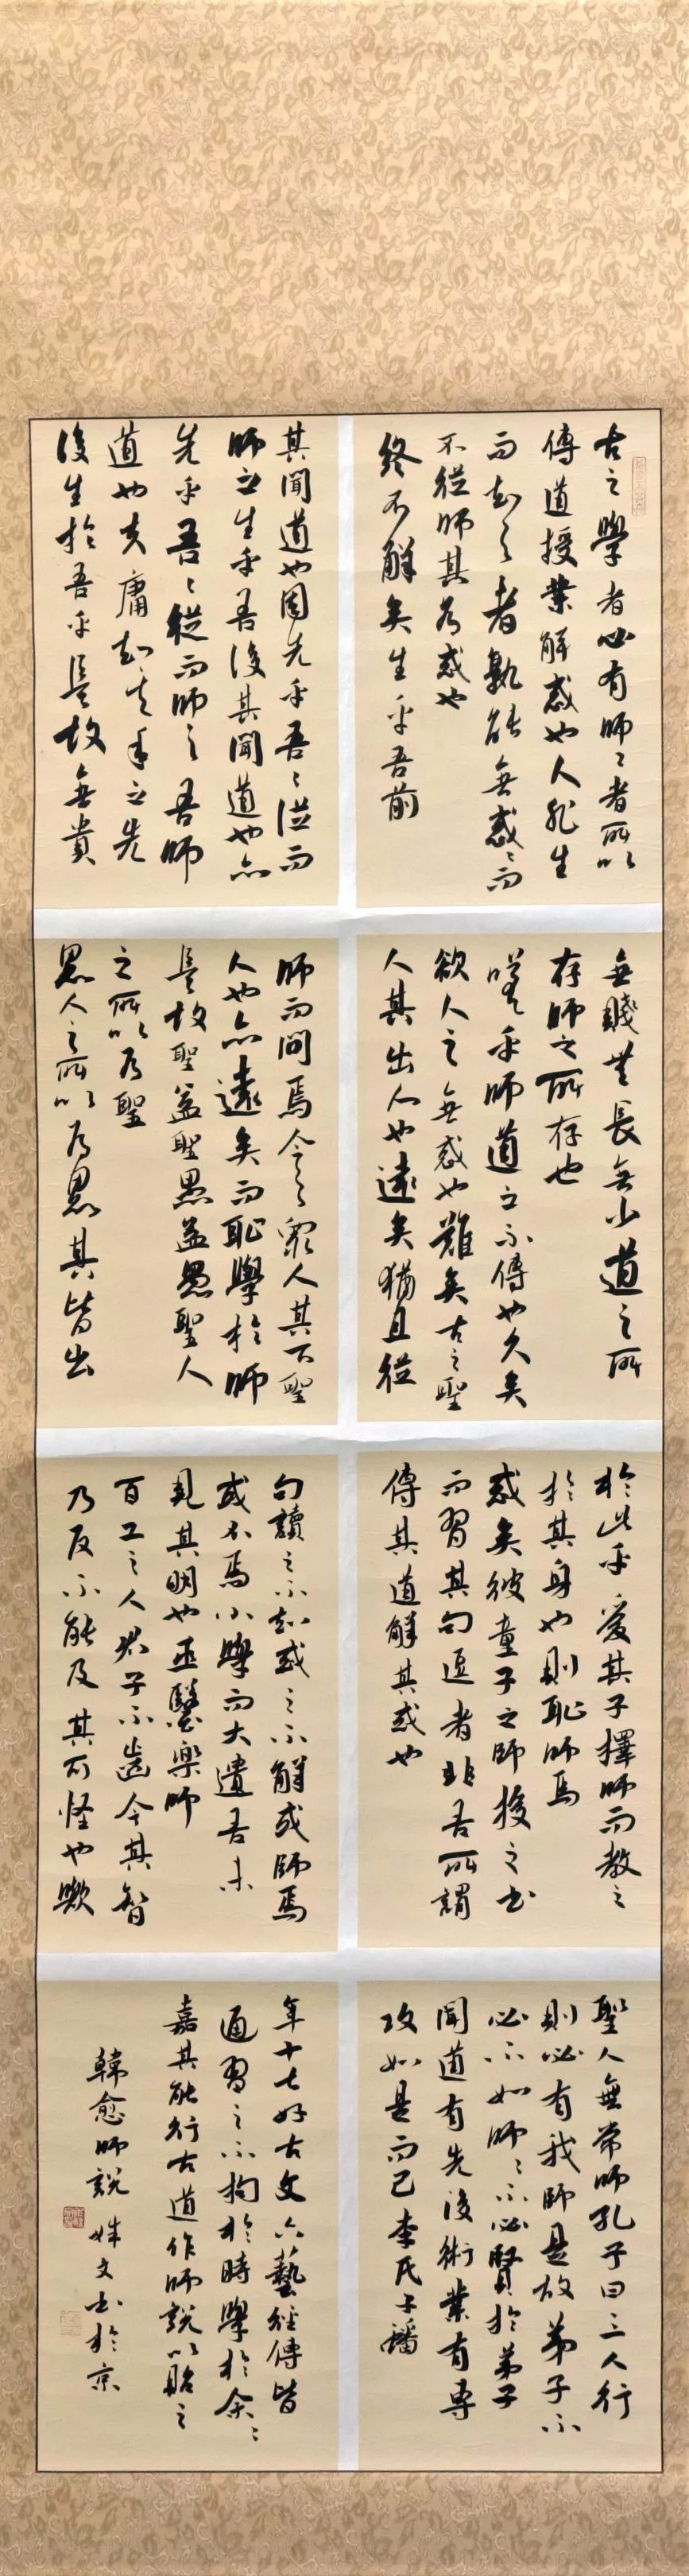 古之學者必有師〻者所以
傳道授業解惑也人非生
而知之者孰能無惑〻而
不從師其為惑也
終不解矣生乎吾前
其聞道也固先乎吾〻從而
師之生乎吾後其聞道也亦
先乎吾〻從而師之吾師
道也夫庸知其年之先
後生於吾乎是故無貴
無賤無長無少道之所
存師之所存也
嗟乎師道之不傳也久矣
欲人之無惑也難矣古之聖
人其出人也遠矣猶且從
師而問焉今之眾人其下聖
人也亦遠矣而恥學於師
是故聖益聖愚益愚聖人
之所以為聖
愚人之所以為愚其皆出
於此乎愛其子擇師而教之
於其身也則恥師焉
惑矣彼童子之師授之書
而習其句逗者非吾所謂
傳其道解其惑也
句讀之不知惑之不解或師焉
或不焉小學而大遺吾未
見其明也巫醫樂師
百工之人君子不齒今其智
乃反不能及其可怪也歟
聖人無常師孔子曰三人行
則必有我師是故弟子不
必不如師〻不必賢於弟子
聞道有先後術業有專
攻如是而已李氏子蟠
年十七好古文六藝經傳皆
通習之不拘於時學於余〻
嘉其能行古道作師說以貽之
韓愈師說 姝文書於京